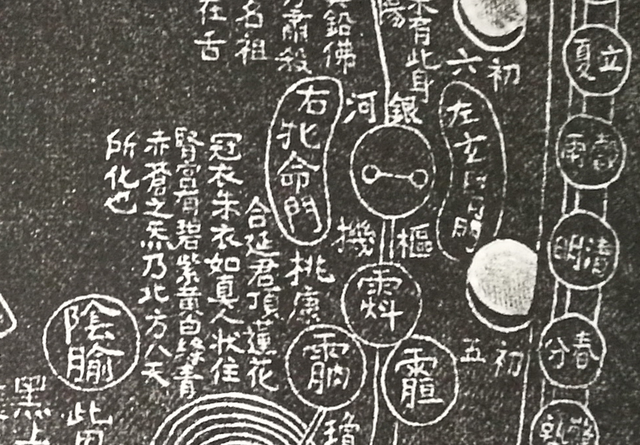 立夏
穀雨
清明
春分
初六
初五
左玄
未有此身
陽
銀河
樞機
鉛佛
肅殺
名祖
在舌
右牝命門
桃康
合延君頂蓮花
冠衣朱衣如真人狀住
腎宮有碧紫黃白綠青
赤蒼之炁乃北方八天
所化也
陰腧
此
黑